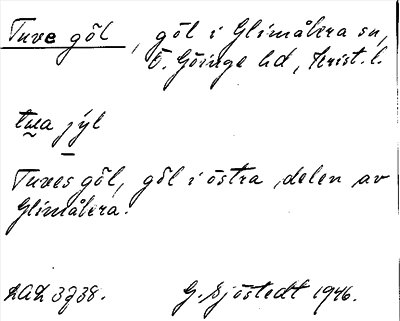 Tuve göl, göl i Glimåkra sn,
Ö. Göinge hd, Krist. l.
tua jyl
Tuves göl, göl i östra delen av
Glimåkra.
LAL 3738.  G. Sjöstedt 1946.